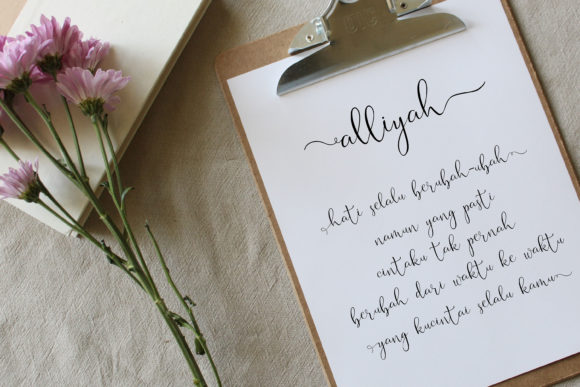 alliyah
hati selalu berubah-ubah
namun yang pasti
cintaku tak pernah
berubah dari waktu ke waktu
yang kucintai selalu kamu